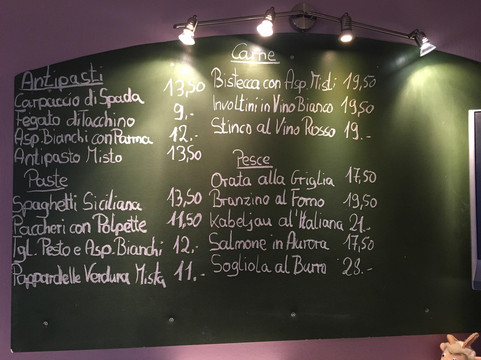 Antipasti
Carpaccio di Spada 13,50
Fegato di tacchino 9,-
Asp. Bianchi con Parma 12.-
Antipasto Misto 13,50
Paste
Spaghetti Siciliana 13,50
Paccheri con Polpette 11,50
Tgl. Pesto e Asp. Bianchi 12,-
Pappardelle Verdura Mista 11.-
Carne
Bistecca con Asp. Misti 19,50
Involtini in Vino Bianco 19,50
Stinco al Vino Rosso 19.-
Pesce
Orata alla Griglia 17,50
Branzino al Forno 19,50
Kabeljau all'Italiana 21.-
Salmone in Aurora 17,50
Sogliola al Burro 23.-